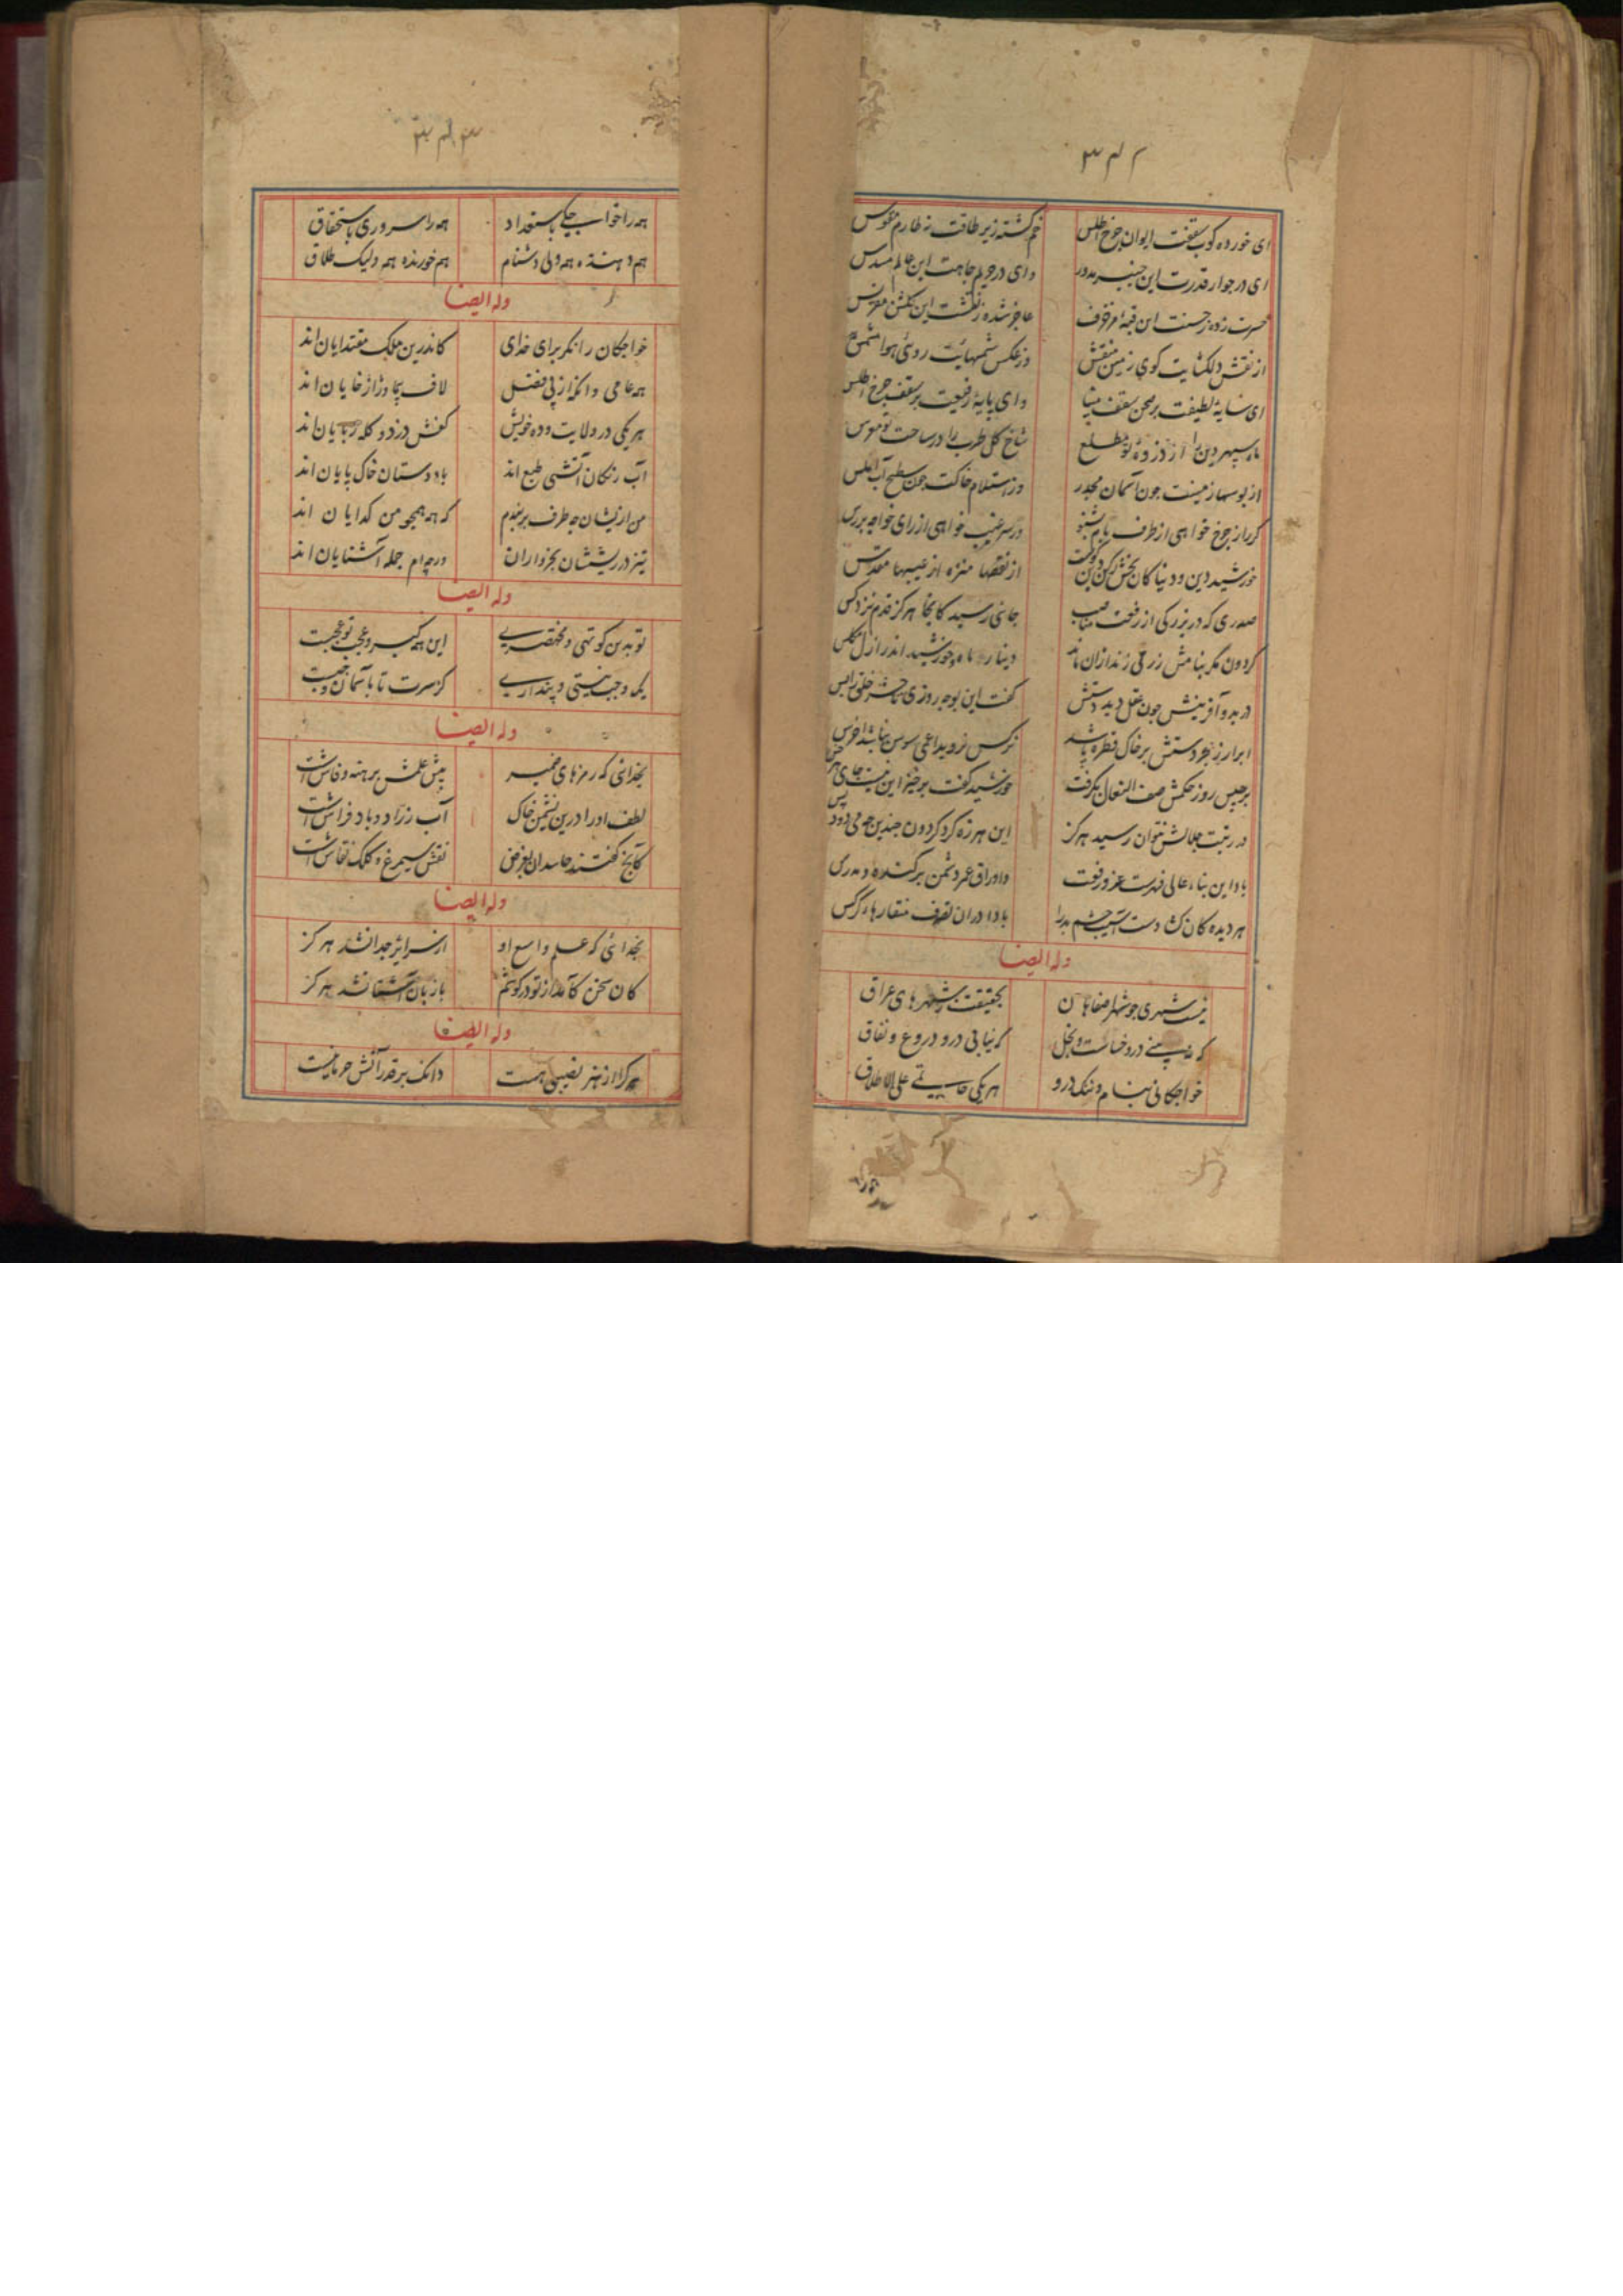 ۳۴۲
ای خورده کوب سقفت ایوان چرخ اطلس خم کشته زیر طاقت نه طارم مقوس
ای در جوار قدرت این چنبر مدور وای در حریم جاهت این عالم مسدس
حسرت زده ز حسنت این قبه مزخرف عاجز شده ز نقشت این کلشن مقرنس
از نقش دلکشایت کوی زمین منقش وز عکس شمسهایت روی هوا مشمس
ای سایهٔ لطیفت بر صحن سقف مینا وای پایهٔ رفیعت بر سقف چرخ اطلس
ماه سپهر دین را از ذروه تو مطلع شاخ کل طرب را در ساحت تو مغرس
از بوسها زمینت چون آسمان مجدر وز استلام خاکت چون سطح آب املس
کر راز چرخ خواهی از طرف بام بشنو ور سر غیب خواهی از رای خواجه بررس
خورشید دین و دنیا کان بخش رکن دین از نقصها منزه از عیبها مقدس
صدری که در بزرکی از رفعت مناصب جائی رسید کانجا هرکز قدم نزد کس
کردون مکر بنامش زر می زند ازان ماند دینار ماه و خورشید اندر ازل مکلس
در بدو آفرینش چون عقل دید دستش کفت این بوجه روزی تا حشر خلق را بس
ابر ار ز بحر دستش بر خاک قطره باشد نرکس نروید اعمی سوسن نباشد اخرس
برجیس روز حکمش صف النعال بکرفت خورشید کفت برخیز این نیست جای هر خس
در رتبت جلالش نتوان رسید هرکز این هرزه کرد کردون چندین چه می دود پس
بادا این بناء عالی فهرست عز و رفعت واوراق عمر دشمن برکنده و مدرس
هر دیده کان نشد دست آسیب چشم بد را بادا دران تصرف منقارهاء کرکس
وله ایضا
نیست شهری چو شهر اصفاهان بحقیقت ز شهرهای عراق
که نه بینی درو خساست و بخل که نیابی درو دروغ و نفاق
خواجکانی بنام و ننک درو هر یکی حاتمی علی الاطلاق
۳۴۳
همه را خواب جکی باستعداد همه را سروری باستحقاق
هم دهنده همه ولی دشنام هم خورنده همه ولیک طلاق
وله ایضا
خواجکان را نکر برای خدای کاندرین ملک مقتدایان اند
همه عامی وانکه از پی فضل لاف پیما و ژاژخایان اند
هر یکی در ولایت و ده خویش کفش دزد و کله ربایان اند
آب رنکان آتشی طبع اند باد دستان خاک پایان اند
من ازیشان چه طرف بربندم که همه همچو من کدایان اند
تیز در ریششان بخرواران ورچه ام جمله آشنایان اند
وله ایضا
تو بدین کوتهی و مختصری این همه کبر و عجب تو عجبست
یک وجب نیستی و پنداری کز سرت تا بآسمان وجبست
وله ایضا
بخدائی که رمزهای ضمیر پیش علمش برهنه و فاش است
لطف او را درین نشیمن خاک آب رزاد و باد فراش است
کآنج کفتند حاسدان بغرض نقش سیمرغ و کلک نقاش است
وله ایضا
بخدائی که علم واسع او از سرائر جدا نشد هرکز
کان سخن کآمد از تو در کوشم با زبان آشنا نشد هرکز
وله ایضا
هر کرا از هنر نصیبی هست دانک بر قدر آتش حرمانیست